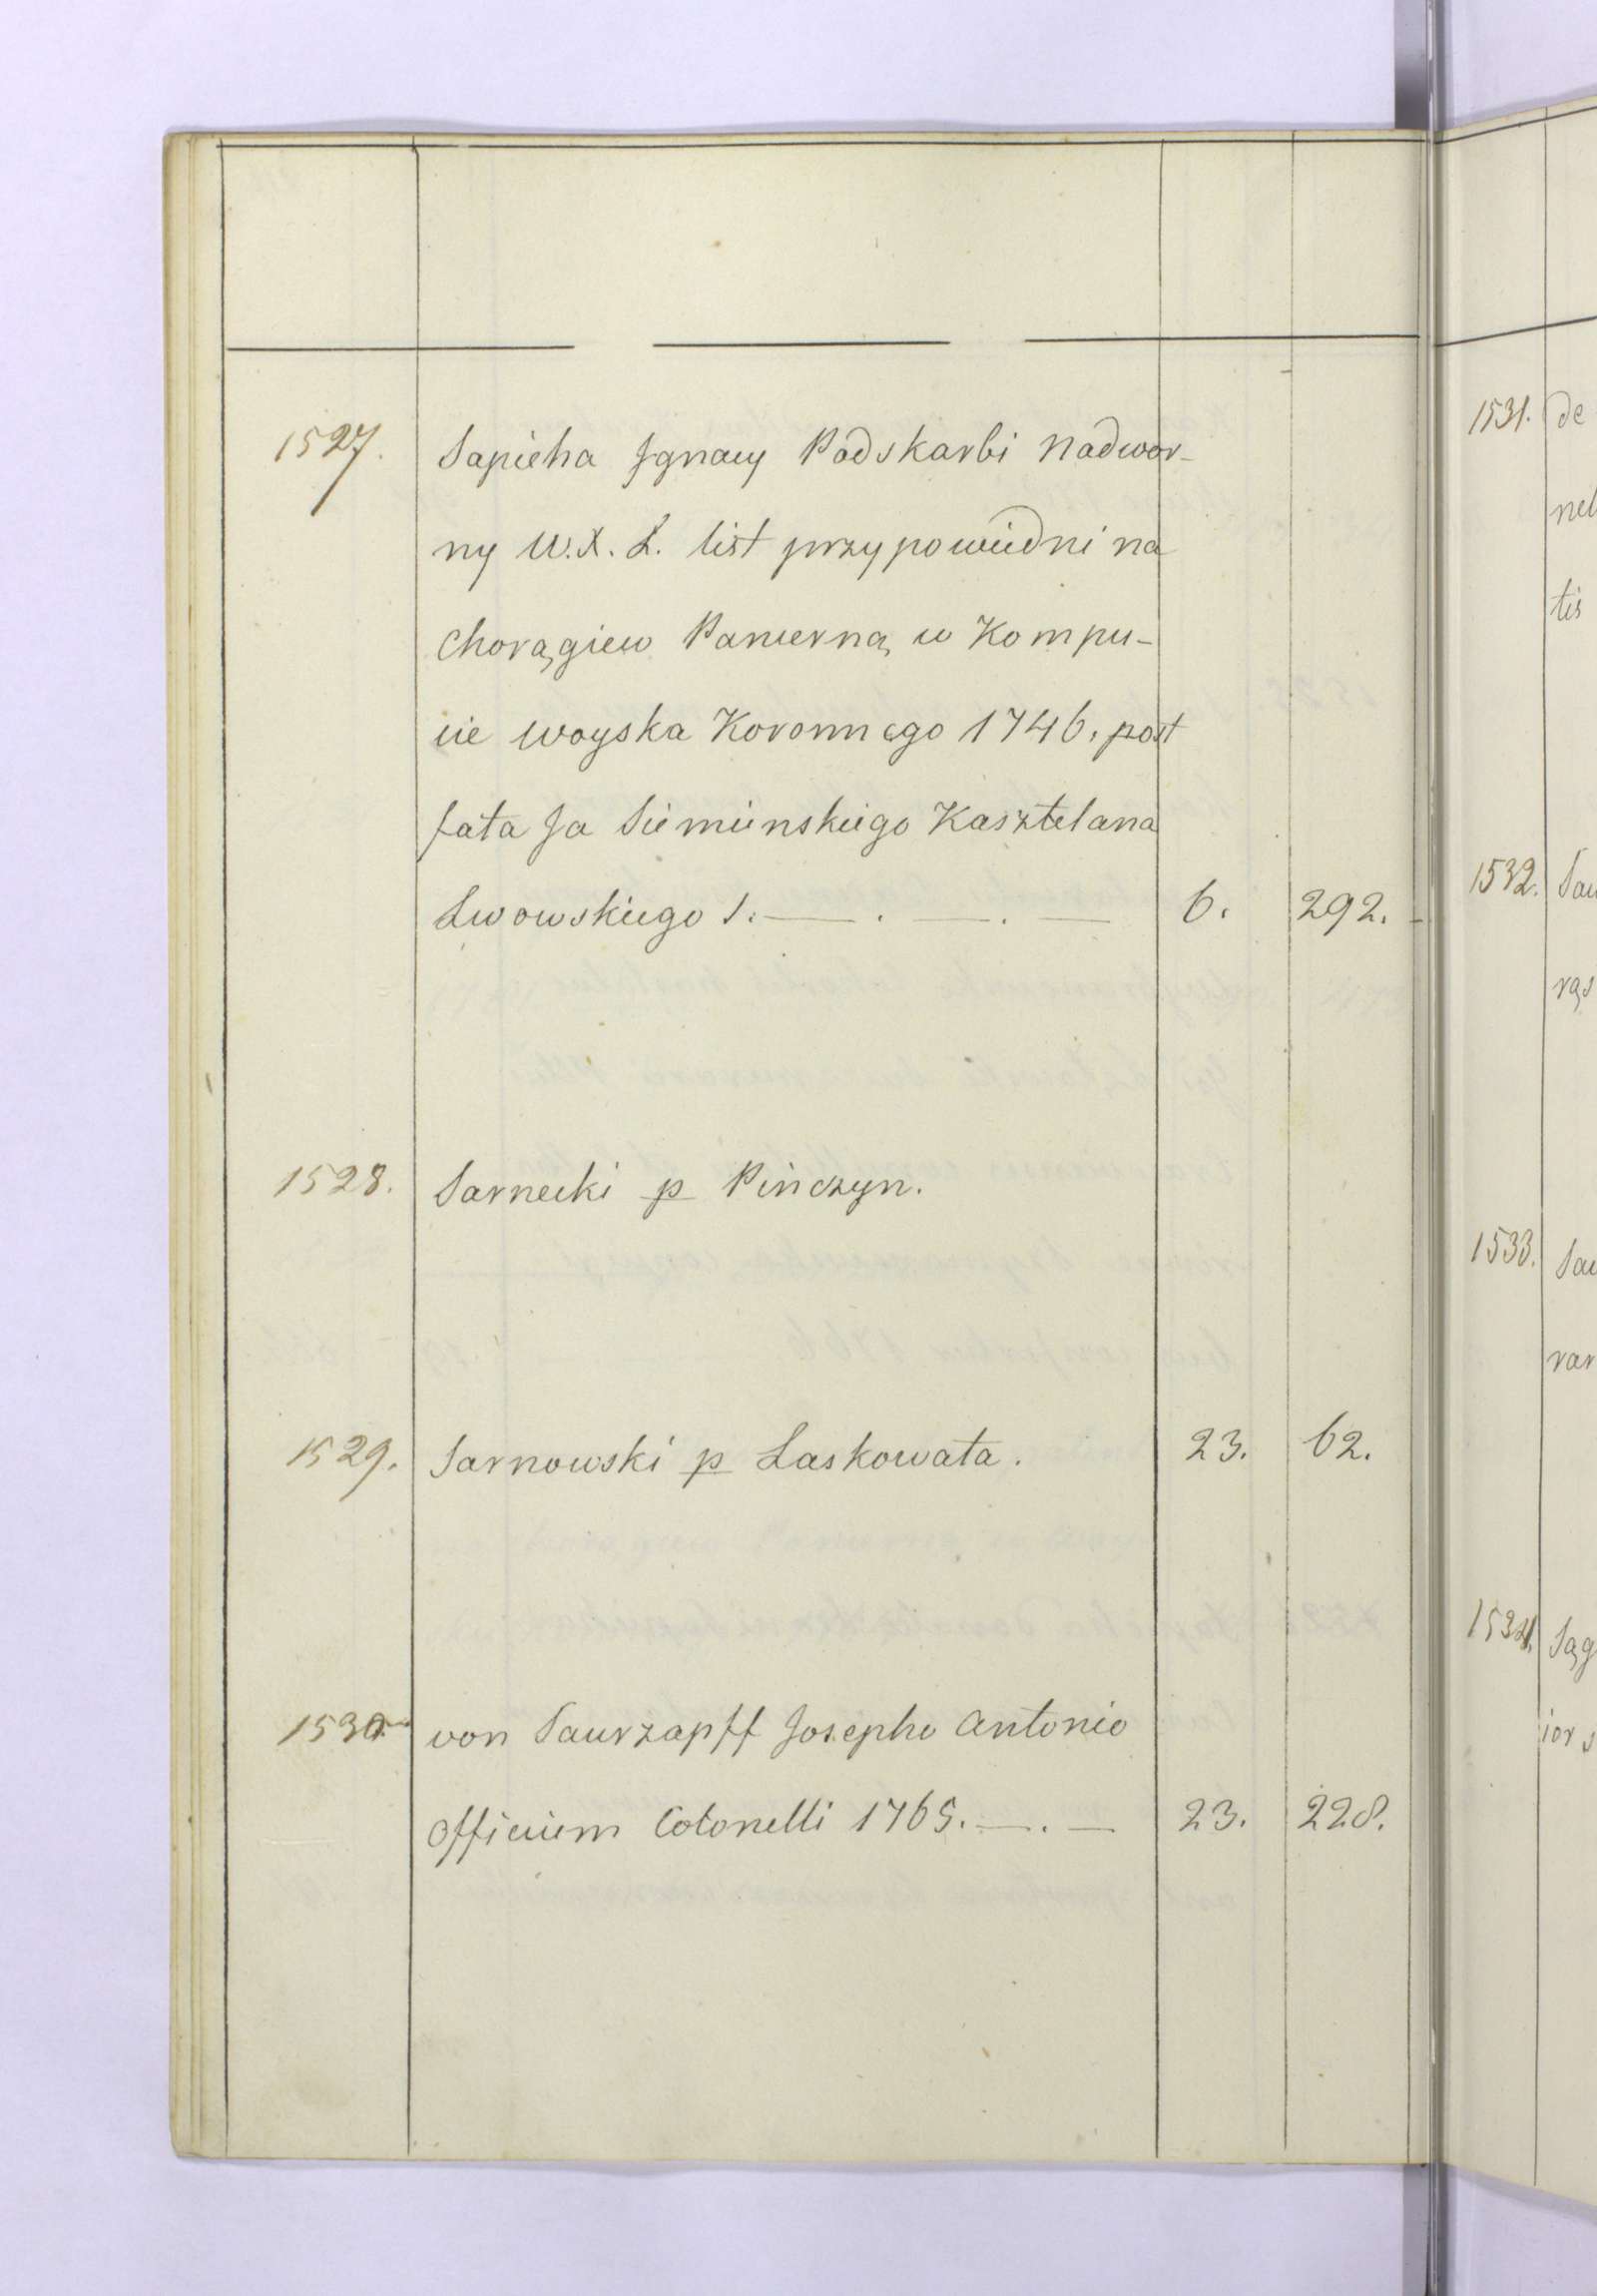 1527. Sapieha Ignacy Podskarbi Nadwor-
ny W.X.L. list przypowiedni na
Chorągiew Pancerną w Kompu-
cie woyska Koronnego 1746. post
fata Ja Siemienskiego Kasztelana
Lwowskiego S. — . — . — 6. 292.
1528. Sarnecki p Pinczyn.
1529. Sarnowski p Laskowata. 23. 62.
1530. von Saurzapff Josepho Antonio
Officium Colonelli 1765. — . — 23. 228.
1531. de
nel
tis
1532. Sau
ras
1533. Sau
rar
1534. Sąg
ior s